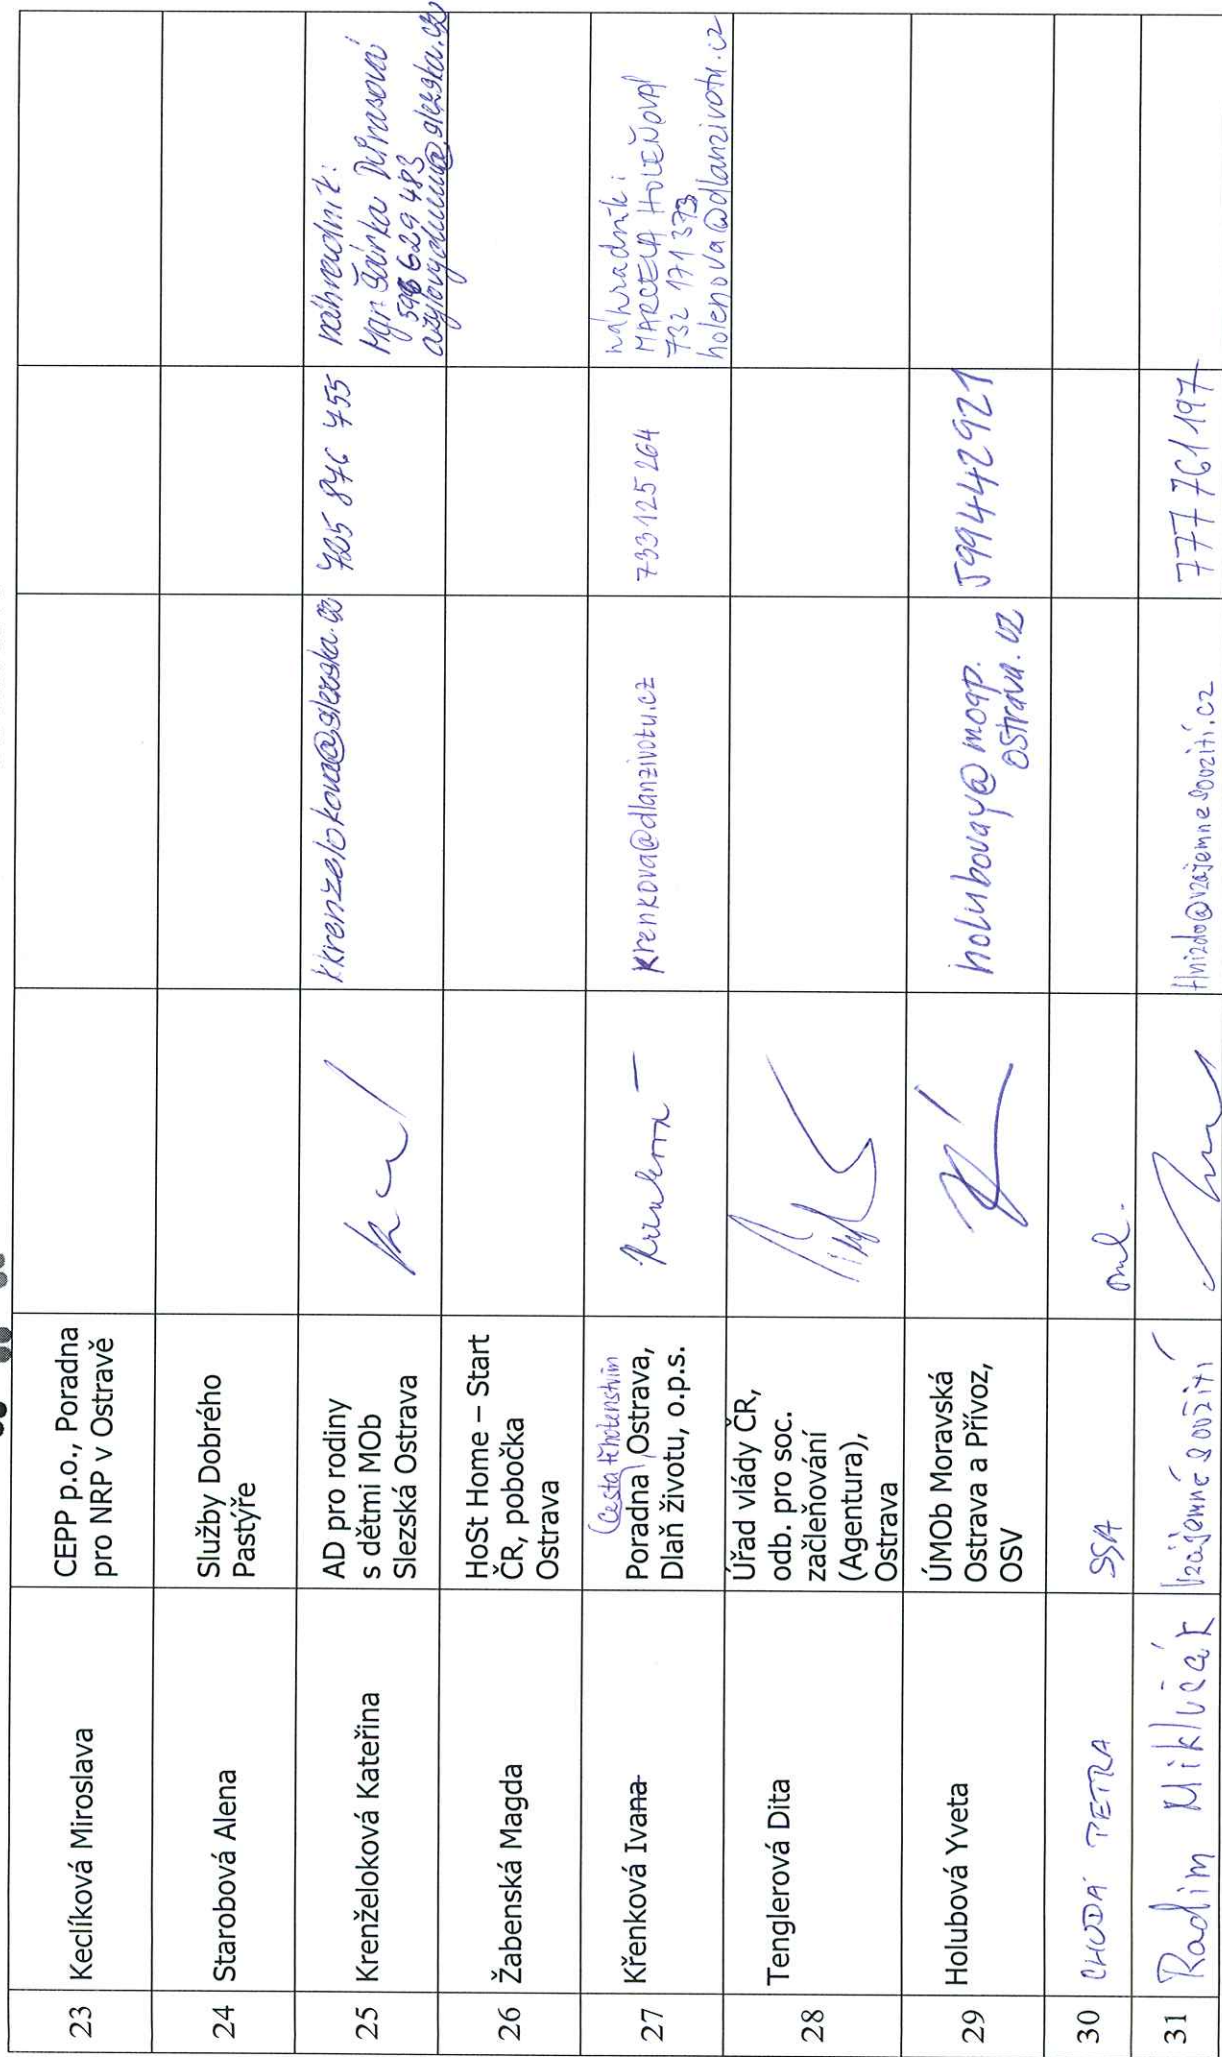 23
Keclíková Miroslava
CEPP p.o., Poradna
pro NRP v Ostravě
24
Starobová Alena
Služby Dobrého
Pastýře
25
Krenželoková Kateřina
AD pro rodiny
s dětmi MOb
Slezská Ostrava
kkrenzelokova@slezska.cz
725 876 755
náhradník:
Mgr. Šárka
596 629 483
@slezska.cz
26
Žabenská Magda
HoSt Home – Start
ČR, pobočka
Ostrava
27
Křenková Ivana
Cesta těhotenstvím
Poradna Ostrava,
Dlaň životu, o.p.s.
krenkova@dlanzivotu.cz
733 125 264
náhradník:
MARCELA HOLEŇOVÁ
732 171 373
holenova@dlanzivotu.cz
28
Tenglerová Dita
Úřad vlády ČR,
odb. pro soc.
začleňování
(Agentura),
Ostrava
29
Holubová Yveta
ÚMOb Moravská
Ostrava a Přívoz,
OSV
holubovay@moap.
ostrava.cz
599442921
30
CHUDÁ PETRA
SSA
oml.
31
Radim Miklučák
Vzájemné soužití
Hnizdo@vzajemnesouziti.cz
777 761 197